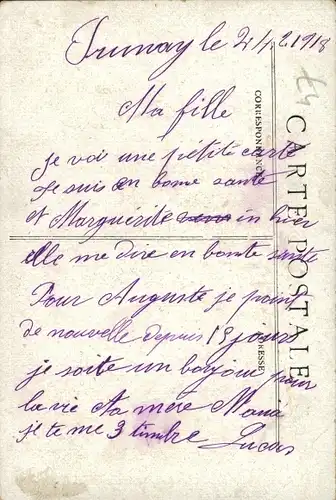 le 2/4 1918
Ma fille
je voi une petite carte
je suis en bone santé
et Marguerite en hier
elle me dire en bonte santé
Pour Auguste je point
de nouvelle depuis 15 jours
je soite un bonjour pour
la vie ta mere Maria
je te me 3 timbre Lucas
CARTE POSTALE
CORRESPONDANCE
ADRESSE